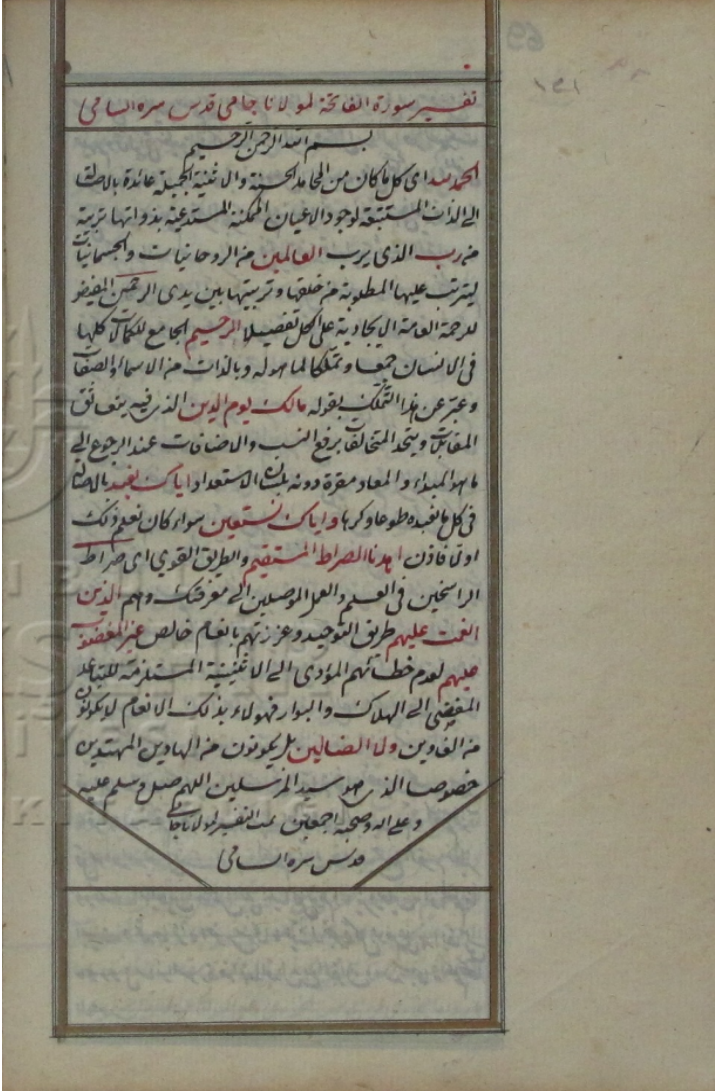 تفسير سورة الفاتحة لمولانا جامى قدس سره السامى
بسم الله الرحمن الرحيم
الحمد لله اى كل ما كان من المحامد الحسنة والاثنية الجميلة عائدة بالاصالة
الى الذات المستتبعة لوجود الاعيان الممكنة المستدعية بذواتها تربية
من رب الذى يرب العالمين من الروحانيات والجسمانيات
ليترتب عليها المطلوبة من خلقها وتربيتها بين يدى الرحمن المفيض
للرحمة العامة الايجادية على الكل تفصيلا الرحيم الجامع للكمالات كلها
فى الانسان جمعا وتملكا لما هو له وبالذات من الاسماء والصفات
وعبر عن هذا التملك بقوله مالك يوم الدين الذى فيه يتعانق
المتقابلات ويتحد المتخالفات برفع النسب والاضافات عند الرجوع الى
ما هو المبداء والمعاد مقرة دونه بلسان الاستعداد اياك نعبد بالاصالة
فى كل ما نعبده طوعا وكرها واياك نستعين سواء كان نعلم ذلك
اولا فاذن اهدنا الصراط المستقيم والطريق القوى اى صراط
الراسخين فى العلم والعمل الموصلين الى معرفتك وهم الذين
انعمت عليهم طريق التوحيد وعززتهم بانعام خالص غير المغضوب
عليهم لعدم خطائهم المؤدى الى الاثنينية المستلزمة للتباعد
المفضى الى الهلاك والبوار فهولاء بذلك الانعام لا يكونون
من الغاوين ولا الضالين بل يكونون من الهادين المهتدين
خصوصا الذى هو سيد المرسلين اللهم صل وسلم عليه
وعلى اله وصحبه اجمعين تمت التفسير لمولانا جامى
قدس سره السامى